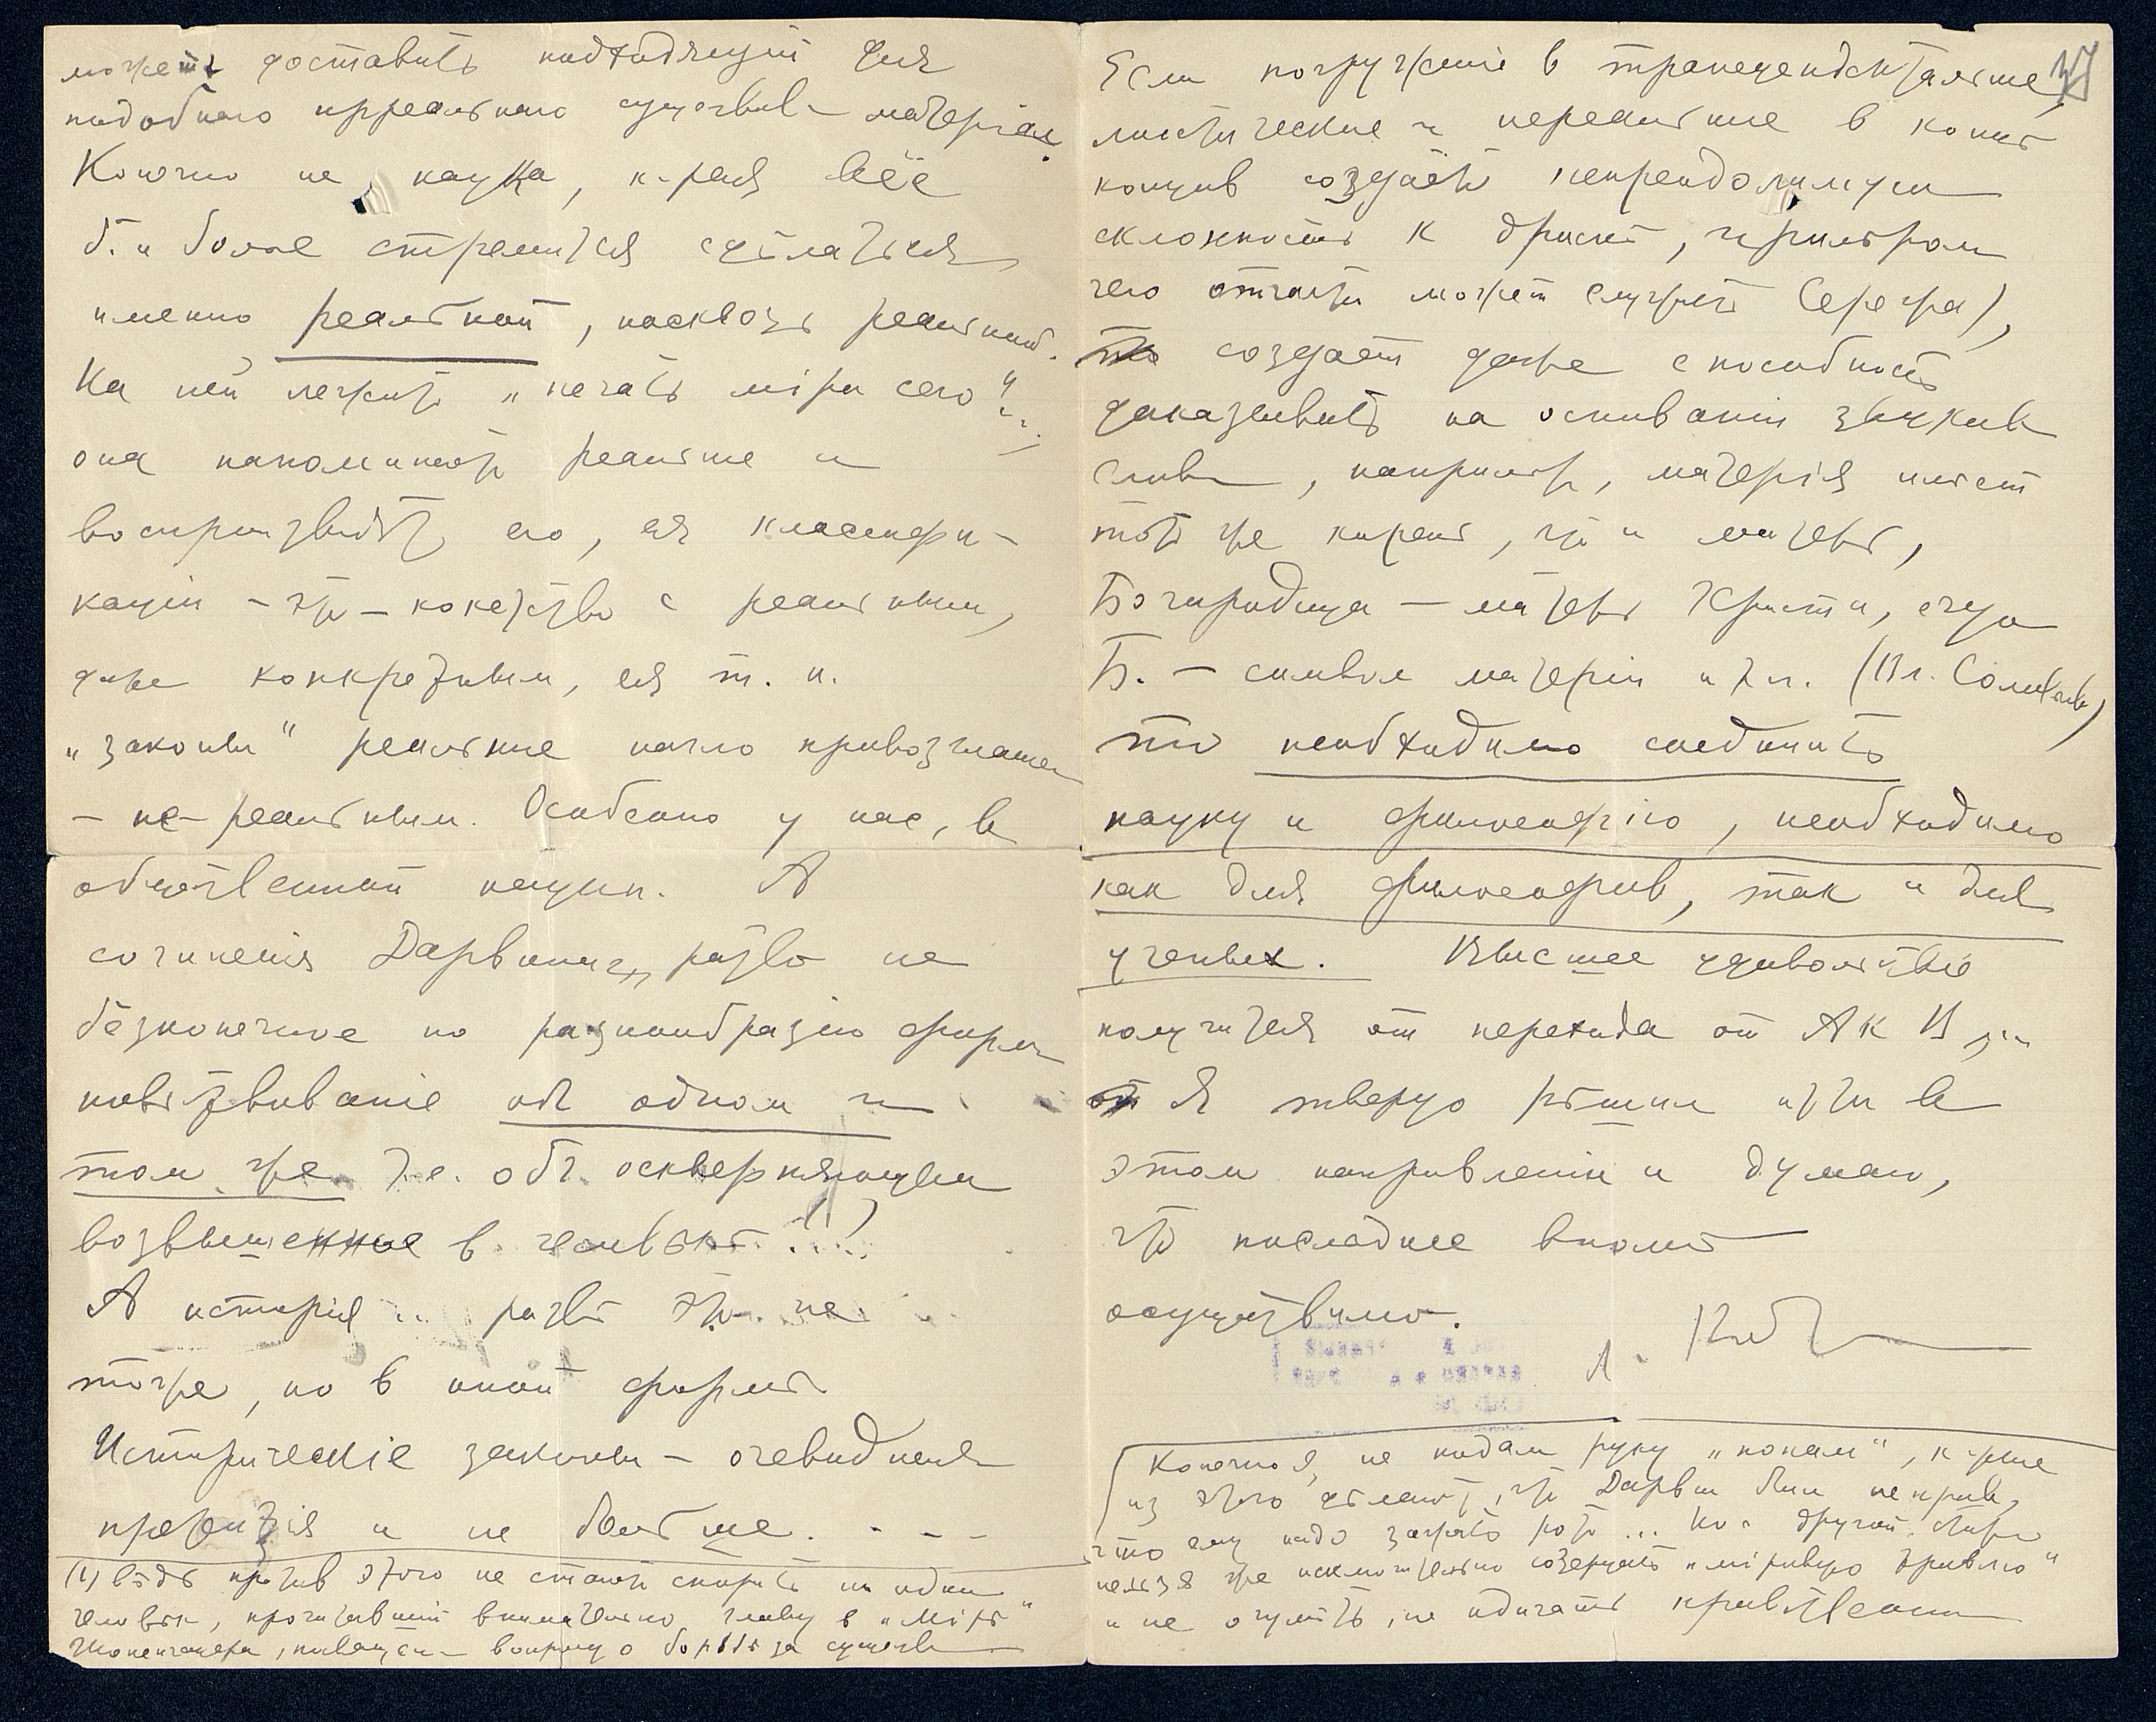 можетъ доставить подходящий для
подобнаго ирреальнаго существов– матерiал.
Конечно не наука, к-рая всё
б. и более стремится сделаться
именно реальной, насквозь реальной.
На ней лежитъ „печать мiра сего"...
она напоминаетъ реальное и
воспроизводитъ его, ея классифи-
кацiи – это – кокетство с реальным,
даже конкретным, ея т. н.
„законы" реальные
– не-реальным. Особенно у нас, в
общественной науки. А
сочиненiя Дарвина, разве не
безконечное по разнообразiю форм
повествованiе об одном и
том же т.е. об оскверняющем
возвышенное в человеке...
А исторiя... разве это не
тоже, но в иной форме
Историческiе законы – очевидная
претензiя и не больше. - - -
(1) ведь против этого не станет спорить ни один
человек, прочитавший внимательно главу в „Мiре"
Шопенгауера, посвящен– вопросу о борьбе за существ–
Если погруженiе в трансцендентальное,
мистическое и нереальное в конце
концов создаётъ непреодолимую
склонность к , примером
чего отчасти может служить Сережа),
создает даже способность
доказывать на основанiи звуков
слов, например, матерiя имеет
тот же корень, что и матерь,
Богородица – матерь Христа, отсюда
Б. – символ матерiи и т. п. (Вл. Соловьев)
то необходимо соединить
науку и философiю, необходимо
как для философов, так и для
ученых. Высшее удовольствiе
получится от перехода от А к В
Я твердо решил итти в
этом направленiи и думаю,
что последнее вполне
осуществимо.
А. Бл
Конечно я не подам руку „попам", к-рые
из этого делают, что Дарвин был неправ,
что ему надо зажать рот... Но с другой стор–
нельзя же исключительно созерцать „мiровую травлю"
и не отупеть, не одичать нравственно